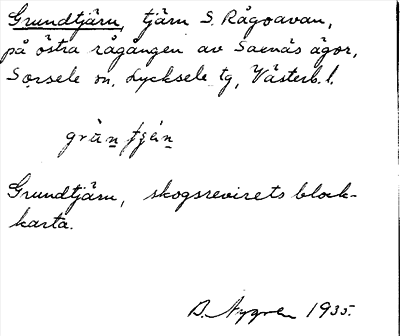 Grundtjärn, tjärn S. Rågoavan,
på östra rågången av Saxnäs ägor,
Sorsele sn, Lycksele tg, Västerb. l.
Grundtjärn, skogsrevirets block-
karta.
D. Nygren 1935.